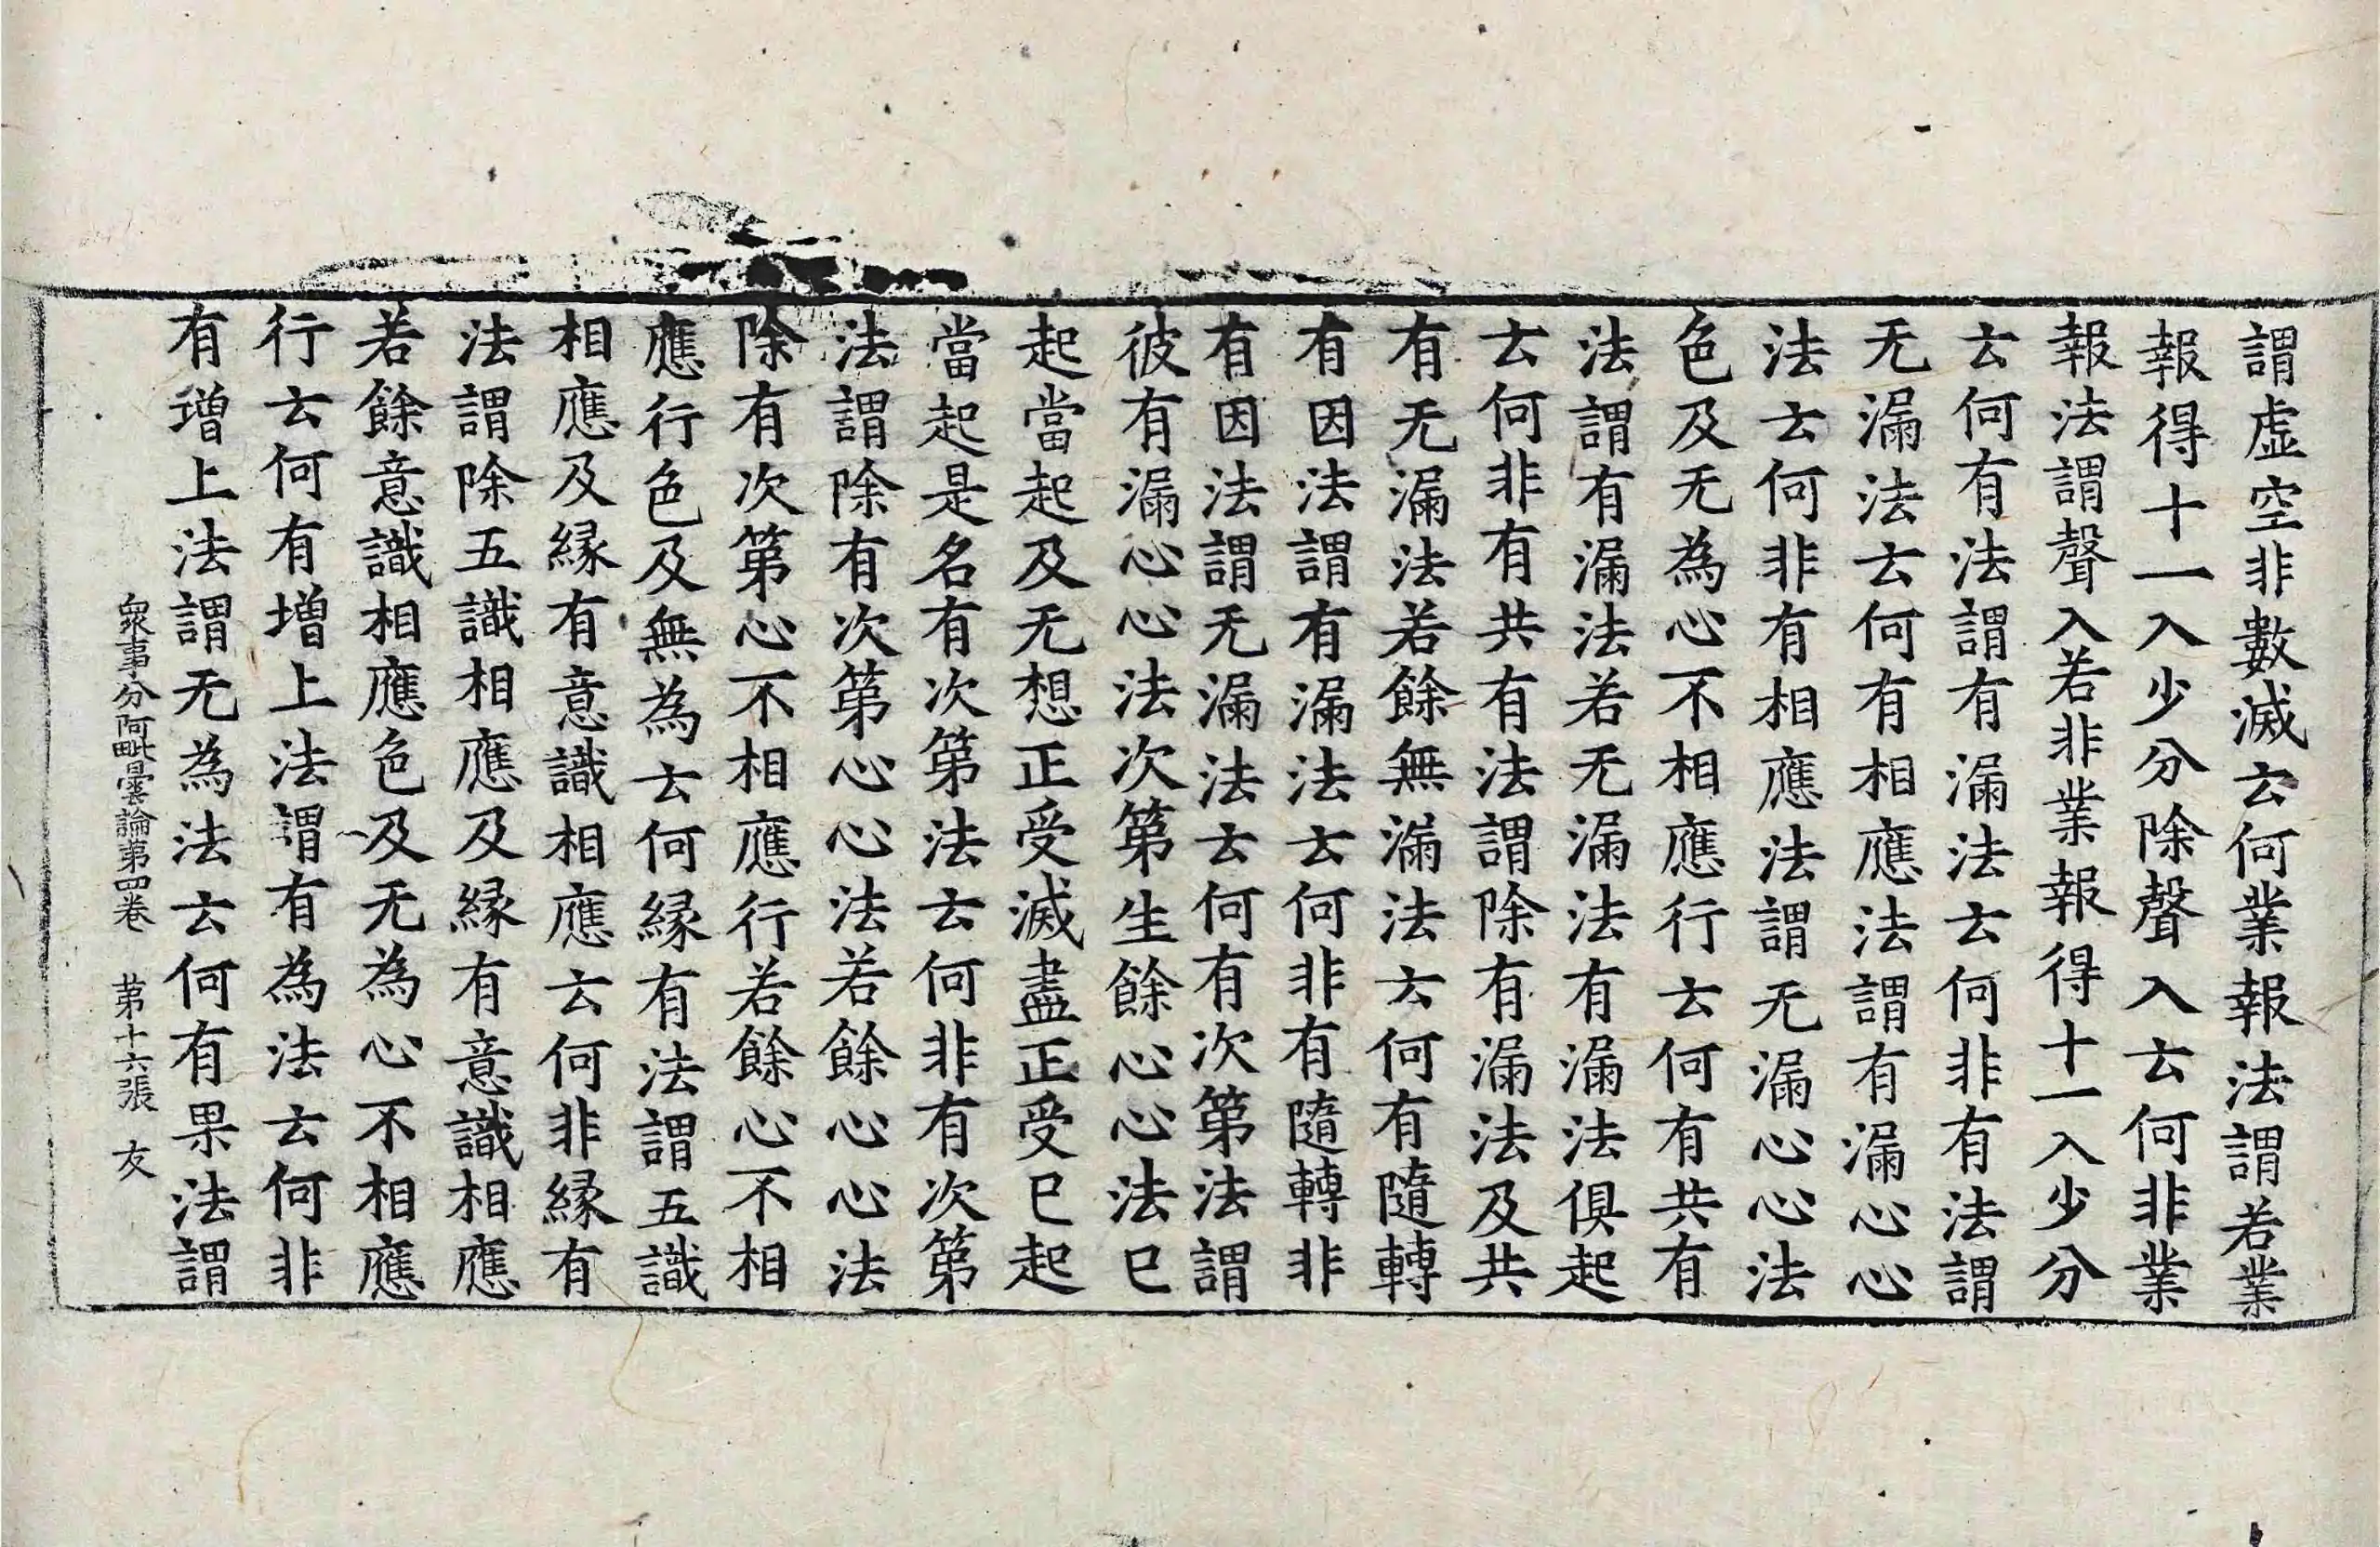 謂虛空非數滅云何業報法謂若業
報得十一入少分除聲入云何非業
報法謂聲入若非業報得十一入少分
云何有法謂有漏法云何非有法謂
无漏法云何有相應法謂有漏心心
法云何非有相應法謂无漏心心法
色及无為心不相應行云何有共有
法謂有漏法若无漏法有漏法俱起
云何非有共有法謂除有漏法及共
有无漏法若餘無漏法云何有隨轉
有因法謂有漏法云何非有隨轉非
有因法謂无漏法云何有次第法謂
彼有漏心心法次第生餘心心法已
起當起及无想正受滅盡正受已起
當起是名有次第法云何非有次第
法謂除有次第心心法若餘心心法
除有次第心不相應行若餘心不相
應行色及無為云何緣有法謂五識
相應及緣有意識相應云何非緣有
法謂除五識相應及緣有意識相應
若餘意識相應色及无為心不相應
行云何有增上法謂有為法云何非
有增上法謂无為法云何有果法謂
眾事分阿毗曇論第四卷 第十六張 友